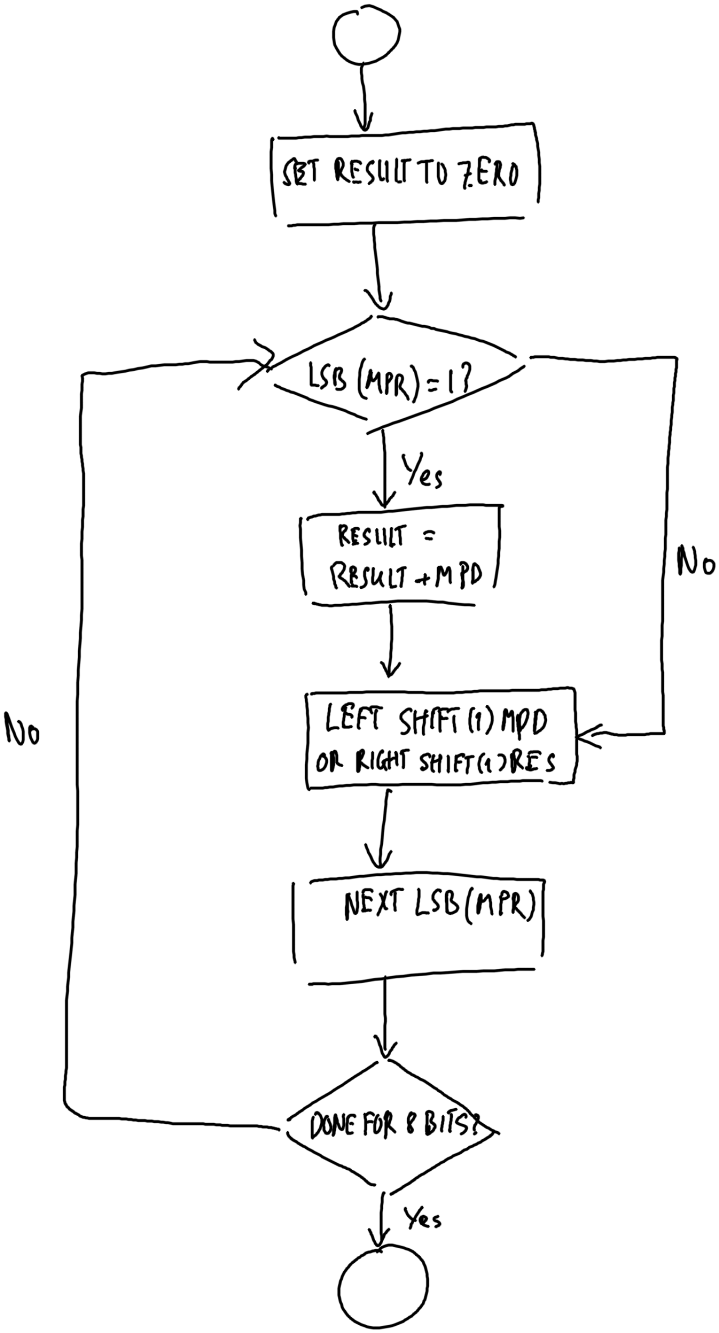 SET RESULT TO ZERO
LSB (MPR) = 1?
Yes
RESULT =
RESULT + MPD
No
LEFT SHIFT (1) MPD
OR RIGHT SHIFT (1) RES
No
NEXT LSB (MPR)
DONE FOR 8 BITS?
Yes